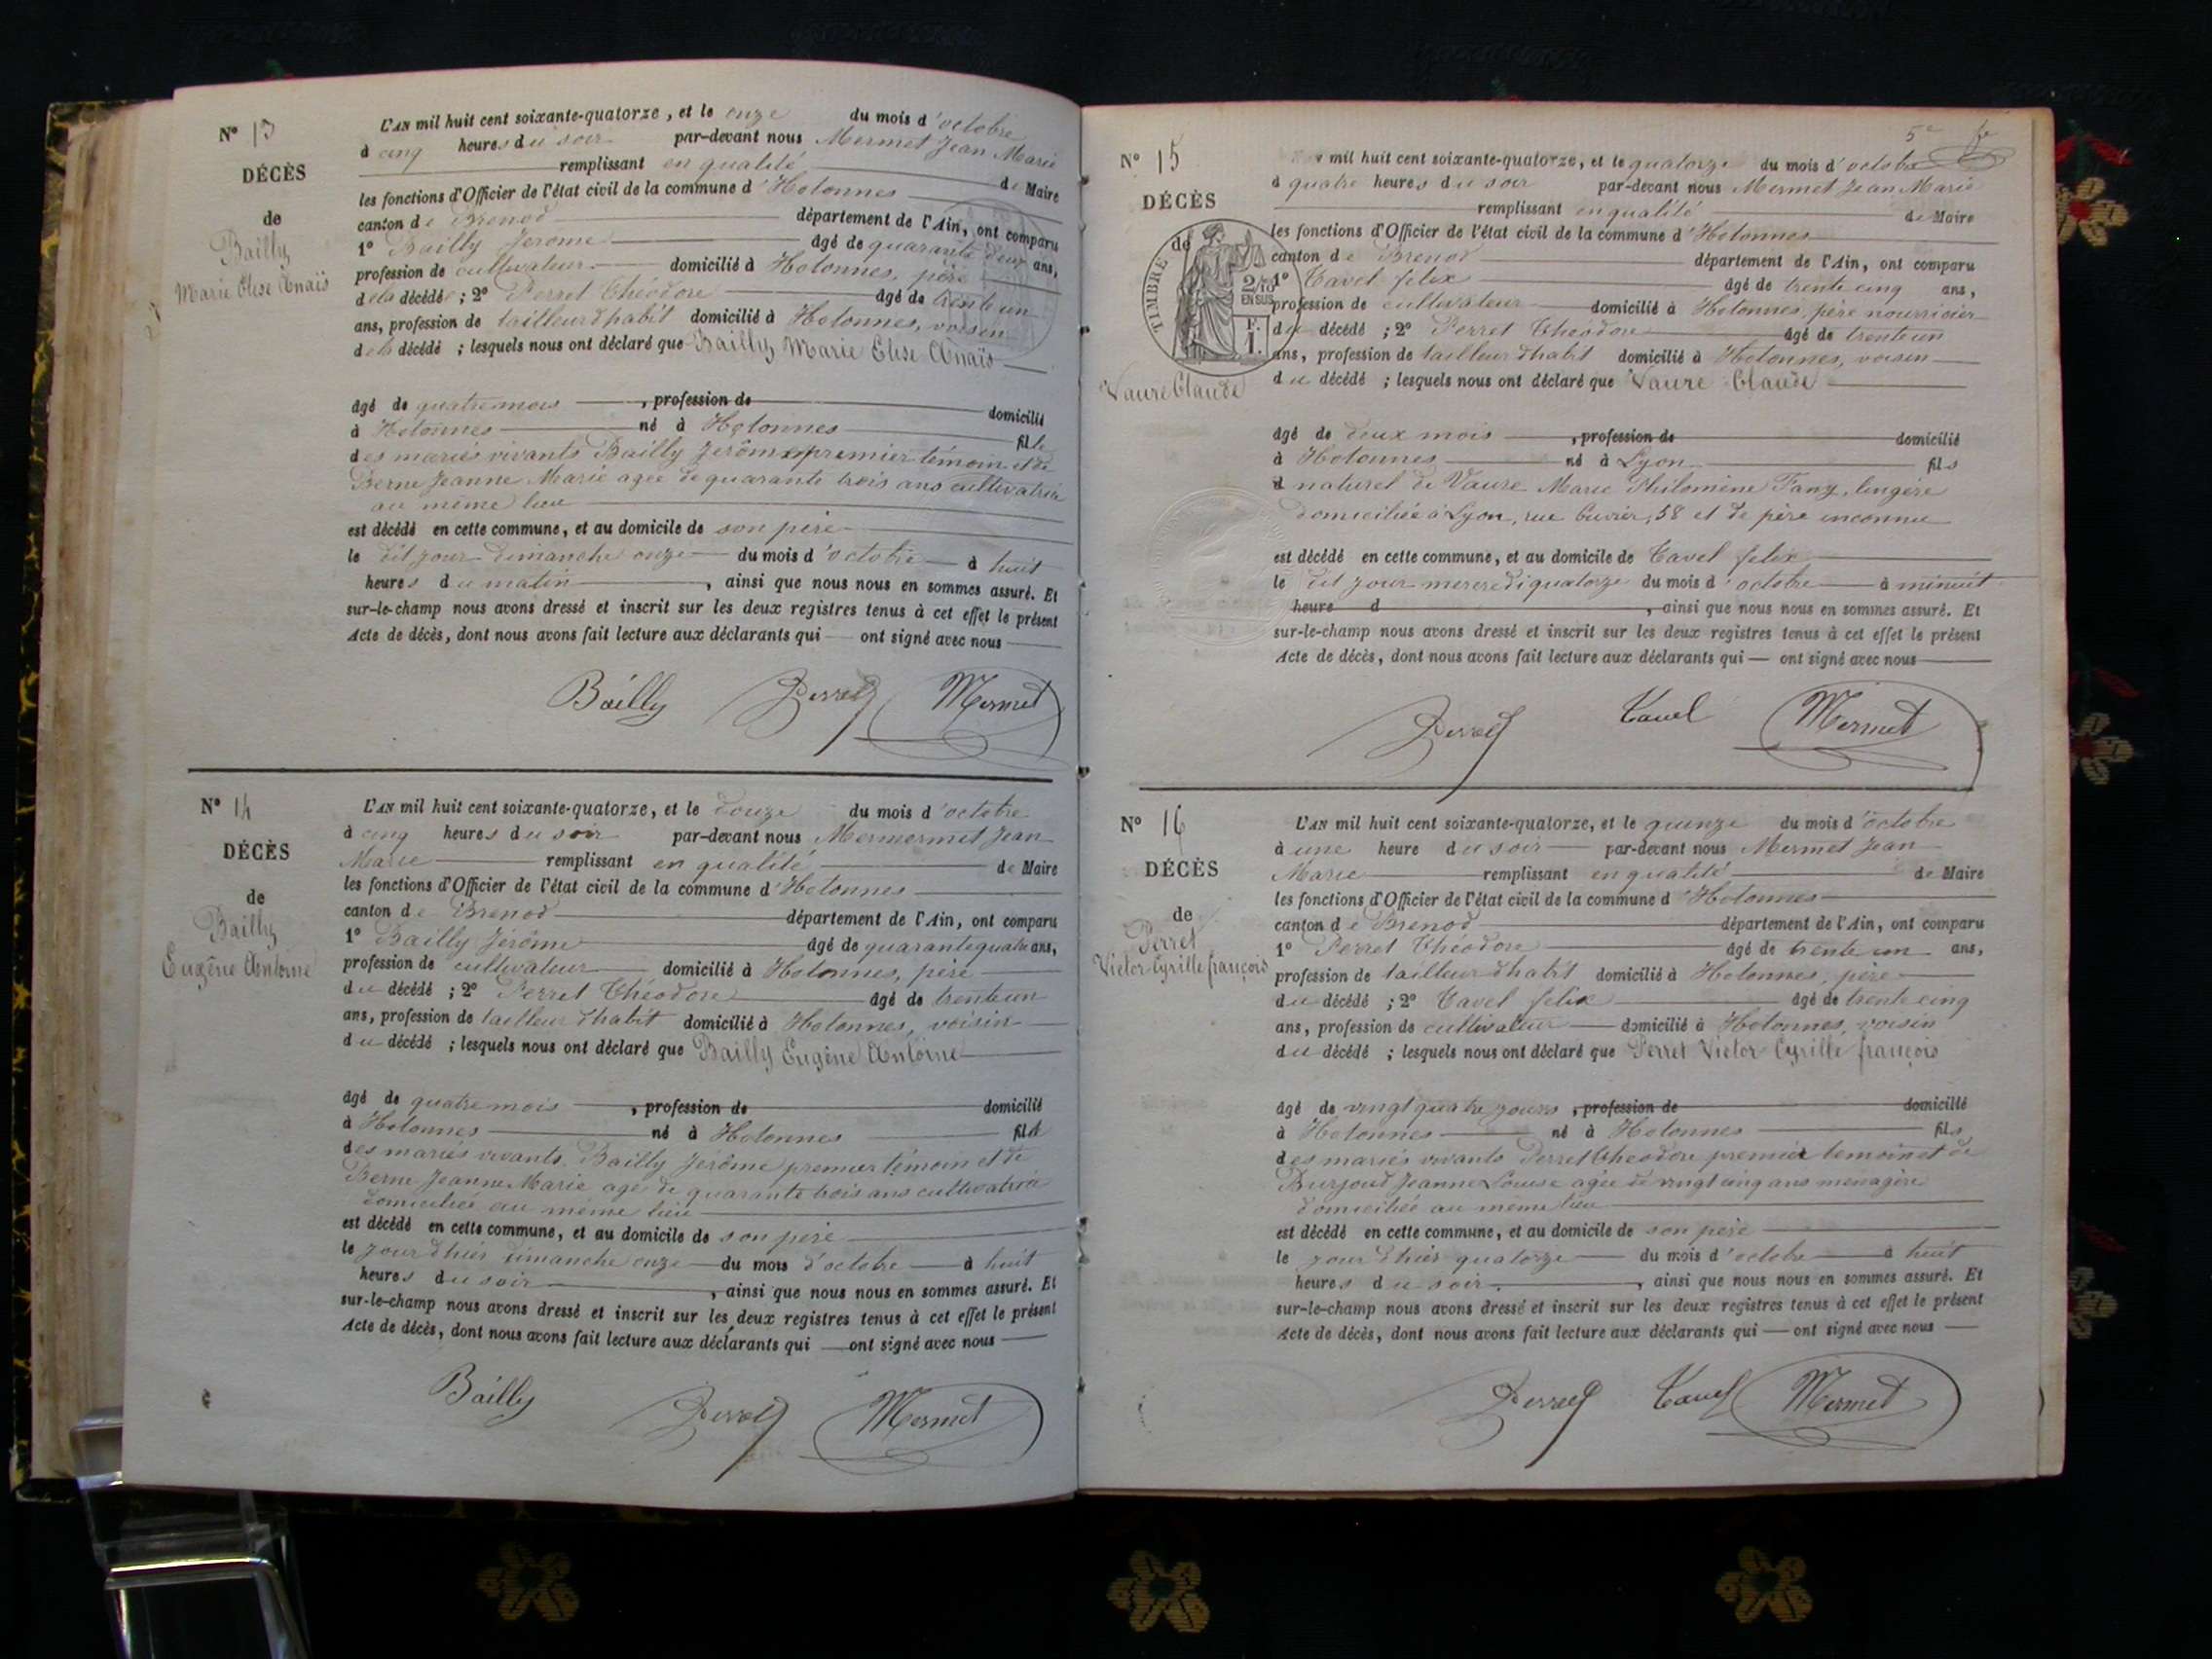 N° 13
DÉCÈS
de
Bailly
Marie Elise Anaïs
L'AN mil huit cent soixante-quatorze, et le onze du mois d'octobre
à cinq heures du soir par-devant nous Mermet Jean Marie
remplissant en qualité de Maire
les fonctions d'Officier de l'état civil de la commune d'Hotonnes
canton de Brenod département de l'Ain, ont comparu
1° Bailly Jerome âgé de quarante deux ans,
profession de cultivateur domicilié à Hotonnes, père
de la décédé ; 2° Perret Théodore âgé de trente un
ans, profession de tailleur d'habit domicilié à Hotonnes, voisin
de la décédé ; lesquels nous ont déclaré que Bailly Marie Elise Anaïs
âgé de quatre mois , profession de domicilié
à Hotonnes né à Hotonnes fille
des mariés vivants Bailly Jérôme premier témoin et de
Berne Jeanne Marie agée de quarante trois ans cultivatrice
au même lieu
est décédé en cette commune, et au domicile de son père
le dit jour dimanche onze du mois d'octobre à huit
heures du matin , ainsi que nous nous en sommes assuré. Et
sur-le-champ nous avons dressé et inscrit sur les deux registres tenus à cet effet le présent
Acte de décès, dont nous avons fait lecture aux déclarants qui ont signé avec nous
Bailly Perret Mermet
N° 14
DÉCÈS
de
Bailly
Eugêne Antoine
L'AN mil huit cent soixante-quatorze, et le douze du mois d'octobre
à cinq heures du soir par-devant nous Mermermet Jean
Marie remplissant en qualité de Maire
les fonctions d'Officier de l'état civil de la commune d'Hotonnes
canton de Brenod département de l'Ain, ont comparu
1° Bailly Jérôme âgé de quarante quatre ans,
profession de cultivateur domicilié à Hotonnes, père
du décédé ; 2° Perret Théodore âgé de trente un
ans, profession de tailleur d'habit domicilié à Hotonnes, voisin
du décédé ; lesquels nous ont déclaré que Bailly Eugêne Antoine
âgé de quatre mois , profession de domicilié
à Hotonnes né à Hotonnes fils
des mariés vivants Bailly Jérôme premier témoin et de
Berne Jeanne Marie agé de quarante trois ans cultivatrice
domiciliée au même lieu
est décédé en cette commune, et au domicile de son père
le jour d'hier dimanche onze du mois d'octobre à huit
heures du soir , ainsi que nous nous en sommes assuré. Et
sur-le-champ nous avons dressé et inscrit sur les deux registres tenus à cet effet le présent
Acte de décès, dont nous avons fait lecture aux déclarants qui ont signé avec nous
Bailly Perret Mermet
5e
N° 15
DÉCÈS
de
TIMBRE
2/10
EN SUS
F.
1.
Vaure Claude
mil huit cent soixante-quatorze, et le quatorze du mois d'octobre
à quatre heures du soir par-devant nous Mermet Jean Marie
remplissant en qualité de Maire
les fonctions d'Officier de l'état civil de la commune d'Hotonnes
canton de Brenod département de l'Ain, ont comparu
1° Tavel felix âgé de trente cinq ans,
profession de cultivateur domicilié à Hotonnes, père nourricier
du décédé ; 2° Perret Théodore âgé de trente un
ans, profession de tailleur d'habit domicilié à Hotonnes, voisin
du décédé ; lesquels nous ont déclaré que Vaure Claude
âgé de deux mois , profession de domicilié
à Hotonnes né à Lyon fils
naturel de Vaure Marie Philomène Fany, lingère
domiciliée à Lyon, rue Cuvier, 58 et de père inconnu
est décédé en cette commune, et au domicile de Tavel felix
le dit jour mercredi quatorze du mois d'octobre à minuit
heure d , ainsi que nous nous en sommes assuré. Et
sur-le-champ nous avons dressé et inscrit sur les deux registres tenus à cet effet le présent
Acte de décès, dont nous avons fait lecture aux déclarants qui ont signé avec nous
Perret Tavel Mermet
N° 16
DÉCÈS
de
Perret
Victor Cyrille françois
L'AN mil huit cent soixante-quatorze, et le quinze du mois d'octobre
à une heure du soir par-devant nous Mermet Jean
Marie remplissant en qualité de Maire
les fonctions d'Officier de l'état civil de la commune d'Hotonnes
canton de Brenod département de l'Ain, ont comparu
1° Perret Théodore âgé de trente un ans,
profession de tailleur d'habit domicilié à Hotonnes, père
du décédé ; 2° Tavel felix âgé de trente cinq
ans, profession de cultivateur domicilié à Hotonnes, voisin
du décédé ; lesquels nous ont déclaré que Perret Victor Cyrille françois
âgé de vingt quatre jours , profession de domicilié
à Hotonnes né à Hotonnes fils
des mariés vivants Perret Théodore premier temoin et de
Burjoud Jeanne Louise agée de vingt cinq ans ménagère
domiciliée au même lieu
est décédé en cette commune, et au domicile de son père
le jour d'hier quatorze du mois d'octobre à huit
heures du soir , ainsi que nous nous en sommes assuré. Et
sur-le-champ nous avons dressé et inscrit sur les deux registres tenus à cet effet le présent
Acte de décès, dont nous avons fait lecture aux déclarants qui ont signé avec nous
Perret Tavel Mermet